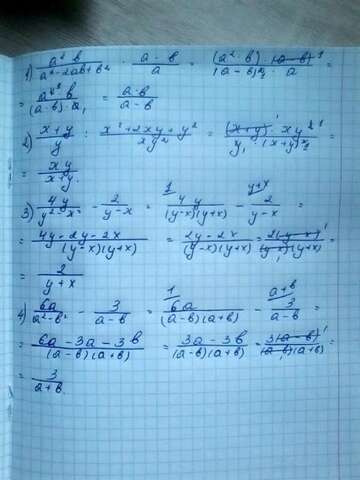 1) a² b / a² - 2ab + b² · a - b / a = (a² b) (a - b) 1 / (a - b)2 · a =
= a² b / (a - b) · a1 = a · b / a - b
2) x + y / y : x² + 2xy + y² / xy² = (x + y) 1 · xy² 1 / y1 · (x + y)² =
= xy / x + y.
3) 4y / y² - x² - 2 / y - x = 1 4y / (y - x)(y + x) - y + x 2 / y - x =
= 4y - 2y - 2x / (y - x)(y + x) = 2y - 2x / (y - x)(y + x) = 2(y - x) 1 / (y - x)(y + x) =
= 2 / y + x
4) 6a / a² - b² - 3 / a - b = 1 6a / (a - b)(a + b) - a + b 3 / a - b =
= 6a - 3a - 3b / (a - b)(a + b) = 3a - 3b / (a - b)(a + b) = 3(a - b) 1 / (a - b)(a + b) =
= 3 / a + b.